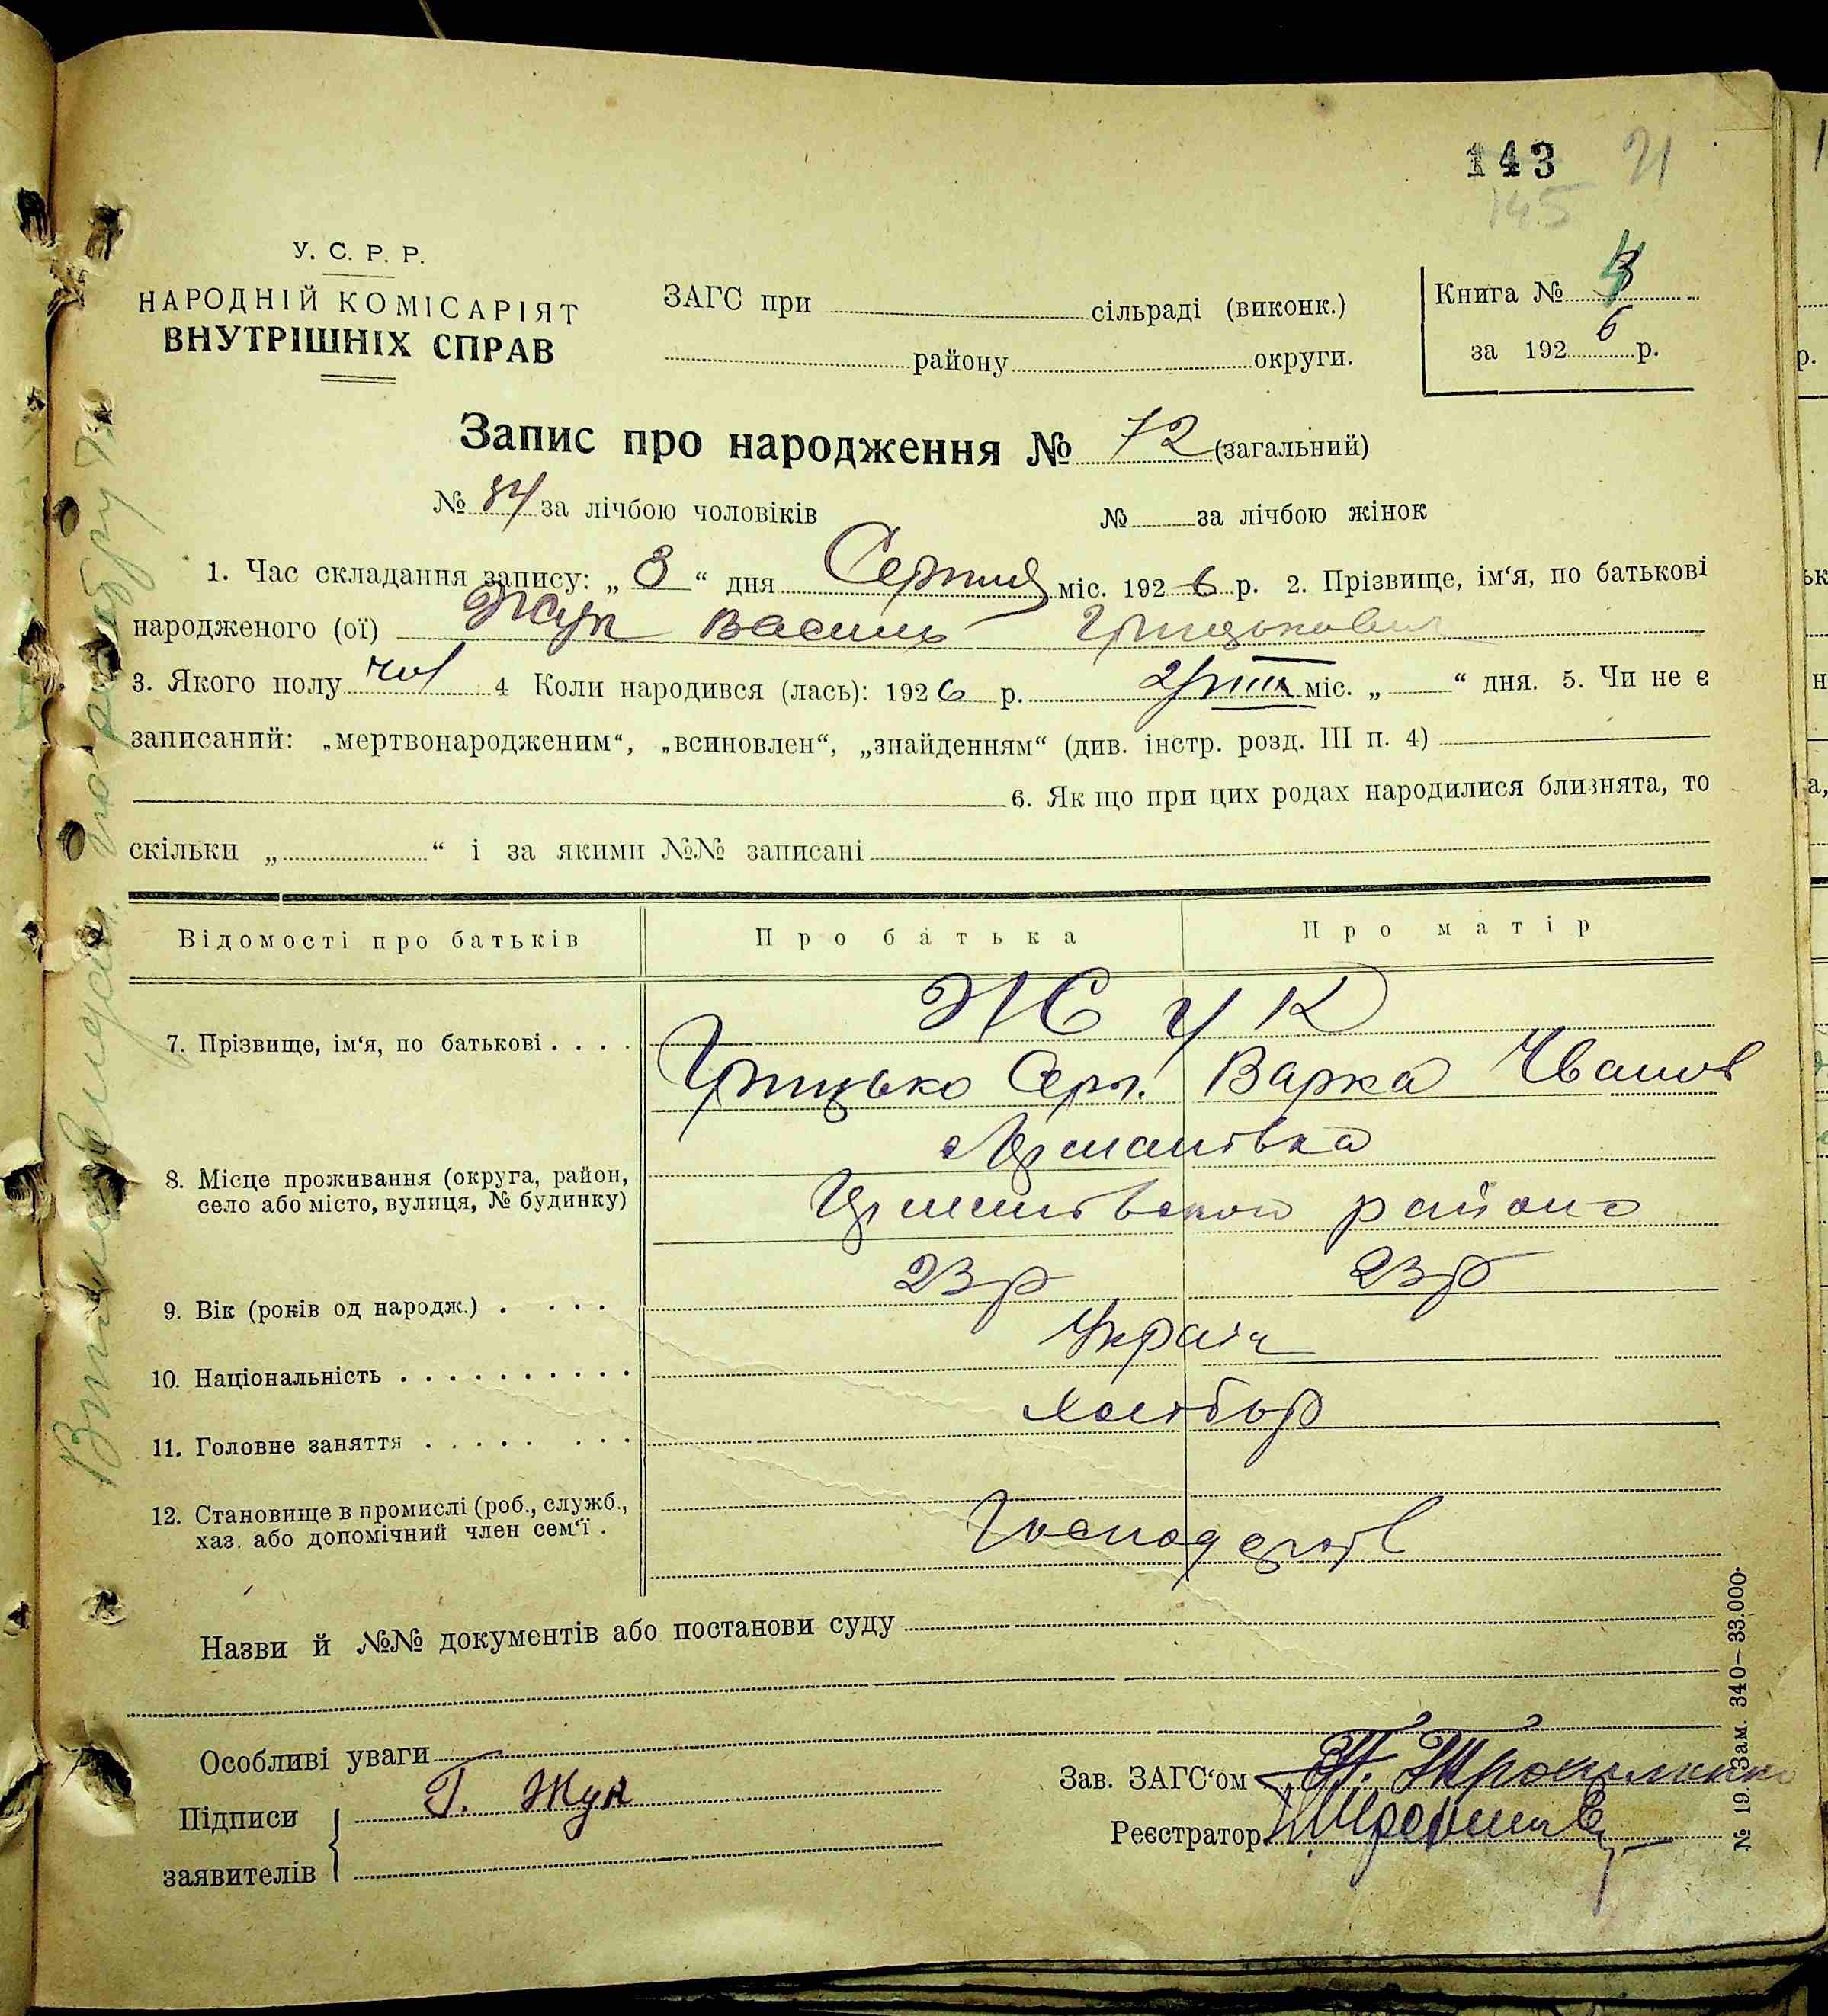 143 21
145
У. С. Р. Р.
НАРОДНІЙ КОМІСАРІЯТ
ВНУТРІШНІХ СПРАВ
ЗАГС при сільраді (виконк.)
району округи.
Книга №
за 1926 р.
Запис про народження № 72 (загальний)
№ за лічбою чоловіків № за лічбою жінок
1. Час складання запису: „8“ дня Серпня міс. 1926 р. 2. Прізвище, ім‘я, по батькові
народженого (ої) Жук Василь Грицькович
3. Якого полу чол 4 Коли народився (лась): 1926 р. 2/VIII міс. „ “ дня. 5. Чи не є
записаний: „мертвонародженим“, „всиновлен“, „знайденням“ (див. інстр. розд. III п. 4)
6. Як що при цих родах народилися близнята, то
скільки „ “ і за якими №№ записані
Відомості про батьків Про батька Про матір
7. Прізвище, ім‘я, по батькові . . . . ЖУК
Грицько Серг. Варка Іванов
8. Місце проживання (округа, район,
село або місто, вулиця, № будинку)
району
9. Вік (років од народж.) . . . . 23р 23р
10. Національність . . . . . . . . . . Україн
11. Головне заняття . . . . . . . . Хлібор
12. Становище в промислі (роб., служб.,
хаз. або допомічний член сем‘ї .
Назви й №№ документів або постанови суду
Особливі уваги
Підписи
заявителів
Г. Жук
Зав. ЗАГС‘ом
Реєстратор
№ 19. Зам. 340–33.000.